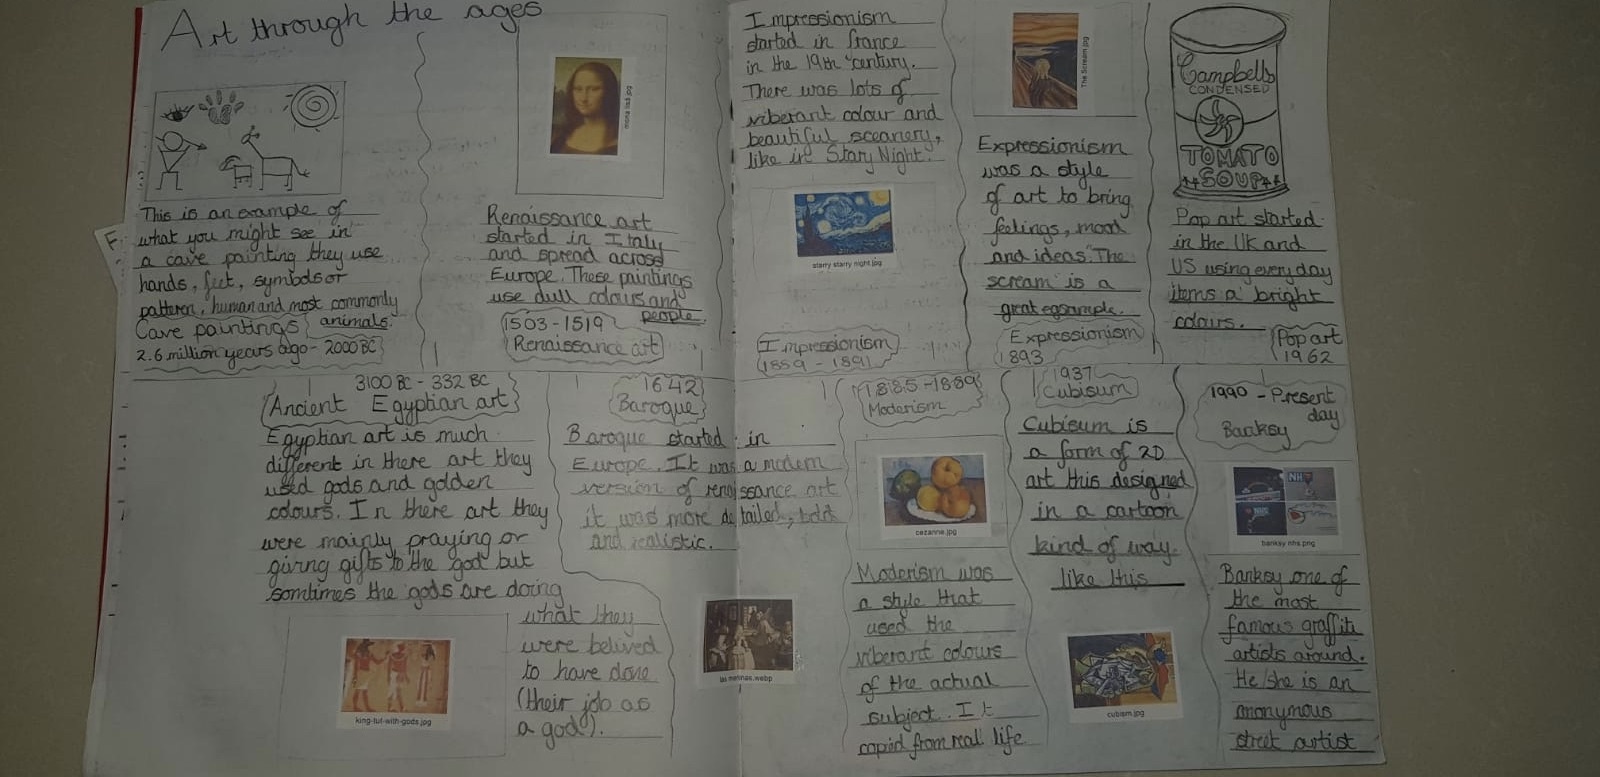 Art through the ages
This is an example of
what you might see in
a cave painting they use
hands, feet, symbols or
patteren, human and most commonly
animals.
Cave paintings
2.6 million years ago - 2000 BC
mona lisa.jpg
Renaissance art
started in Italy
and spread across
Europe. These paintings
use dull colours and
people.
1503-1519
Renaissance art
Impressionism
started in france
in the 19th century.
There was lots of
viberant colour and
beautiful sceanery,
like in Stary Night.
starry starry night.jpg
Impressionism
(1859-1891)
The Scream.jpg
Expressionism
was a style
of art to bring
feelings, mood
and ideas. "The
scream" is a
great egsample.
Expressionism
1893
Campbells
CONDENSED
TOMATO
SOUP
Pop art started
in the UK and
US using every day
items a bright
colours.
Pop art
1962
F
3100 BC - 332 BC
Ancient Egyptian art
Egyptian art is much
different in there art they
used gods and golden
colours. In there art they
were mainly praying or
giving gifts to the god but
somtimes the gods are doing
what they
were belived
to have done
(their job as
a god).
king-tut-with-gods.jpg
1642
Baroque
Baroque started in
Europe. It was a modern
version of renaissance art
it was more detailed, bold
and realistic.
las meninas.webp
1885-1889
Moderism
cezanne.jpg
Moderism was
a style that
used the
viberant colours
of the actual
subject. It
copied from real life
1937
Cubisum
Cubisum is
a form of 2D
art this designed
in a cartoon
kind of way.
like this
cubism.jpg
1990 - Present
day
Banksy
NHS
NHS
banksy nhs.png
Banksy one of
the most
famous graffiti
artists around.
He/she is an
anonymous
street artist